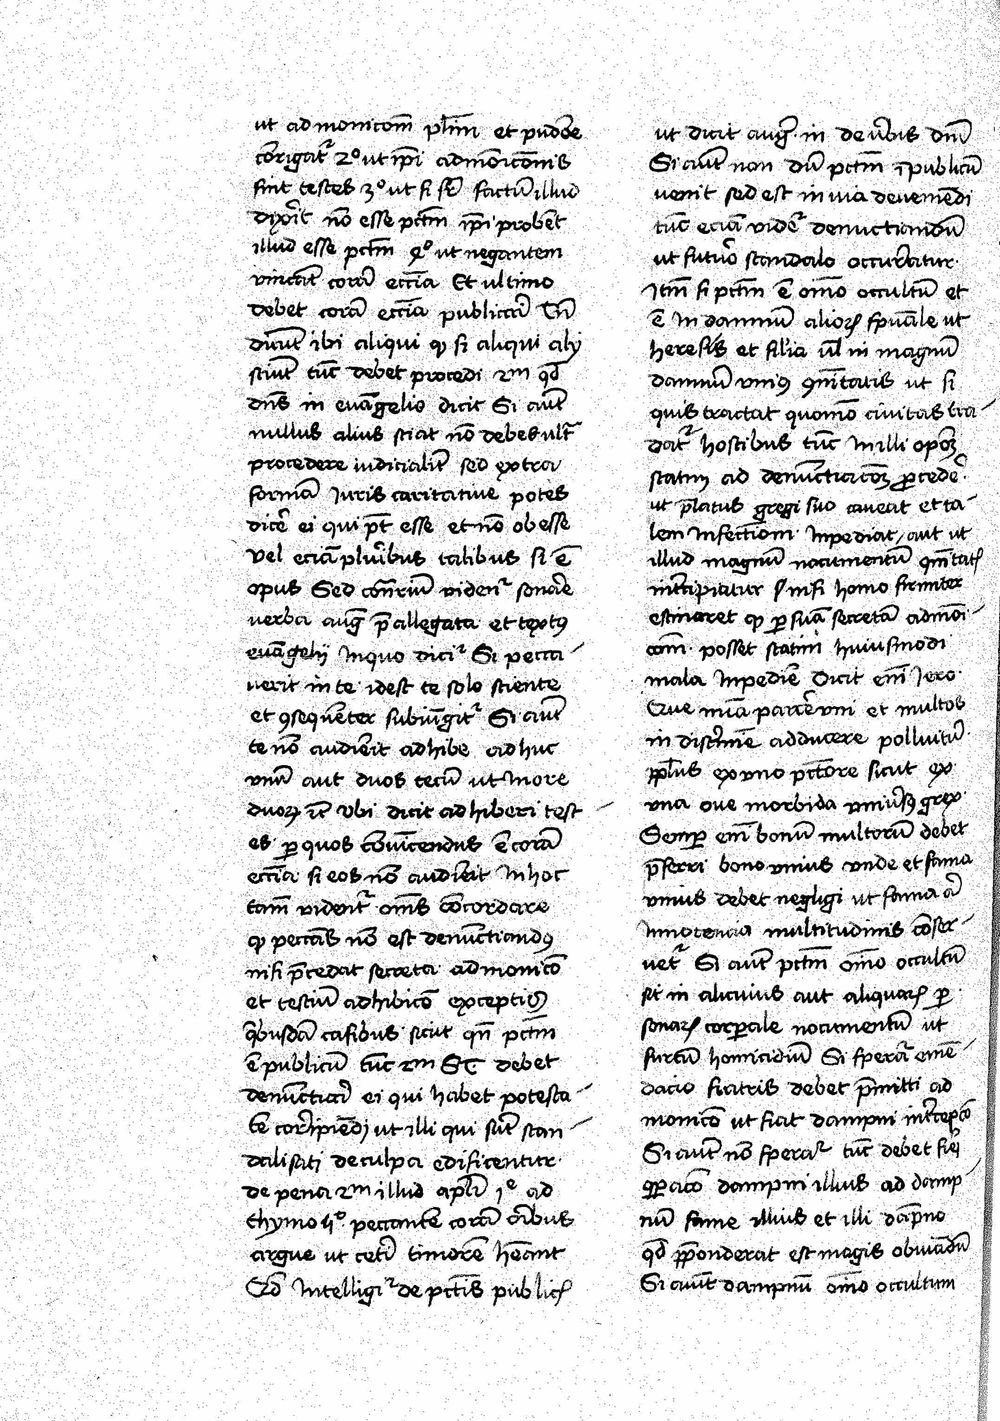 ut admonicom̄ plīm et pudore
corrigat᷑ 2º ut ip̄i admōnicōnis
sint testes 3º ut si fr̄ factū illud
dixerit nō esse pctm̄ ip̄i probēt
illud esse pctm̄ 4º ut negantem
vincāt corā ecc̄ia Et ultimo
debet corā ecc̄ia publicari
dicūt ibi aliqui ꝙ si aliqui alij
sciūt tūc debet procedi 2m qd̄
dn̄s in evāgelio dicit Si aūt
nullus alius sciat nō debes ult᷑
procedere iudicialit᷑ sed extra
formā Juris caritative potes
dic̄e ei qui pt̄ esse et nō obesse
vel eciā plurībus talibus si ē
opus Sed cōnr̄iū viden᷑ sonare
verba auḡ p̄allegata et textꝯ
evāgelij Inquo dici᷑ Si pecca
verit in te idest te solo sciente
et ꝯsequēter subiūgit᷑ Si aūt
te nō audierit adhibe adhuc
vnū aut duos tecū ut In ore
duoꝝ ⁊c̄ Ubi dicit adhiberi test
es ꝑ quos cōvīcendus ē corā
ecc̄ia si eos nō audierit In hoc
tam̄ vident᷑ om̄s cōcordare
ꝙ peccās nō est denūctiandꝯ
nisi p̄cedat secreta admonicō
et testiū adhibicō exceptis
qībusdā casibus sicut qn̄ pctm̄
ē publicū tūc 2m debet
denūctiari ei qui habet potesta
tē corripiēdi ut illi qui sūt scan
dalisati de culpa edificentur
de pena 2m illud apl̄i jᵉ ad
thymo peccantē corā oībus
argue ut ceteri timorē hēant
Qd̄ Intelligi᷑ de pctīs publicꝭ
ut dicit aug᷑ in de v̄bis dnī
Si aūt non dū pctm̄ ī publicū
venit sed est in via deveniēdi
tūc eciā vide᷑ denuctiandū
ut futuro scandalo occurratur
Itm̄ si pctm̄ ē om̄o occultū et
ē In damnū alioꝝ sp̄uāle ut
heresis et sīlia vl̄ in magnū
damnū vniꝯ ꝯmūitatis ut si
quis tractat quomō civitas tra
dat᷑ hostibus tūc In illi oportꝫ
statim ad denūctiacōꝫ ꝓcedē
ut p̄latus gregi suo caveat et ta
lem Infectiom̄ Inpediat aut ut
illud magnū nocumentū ꝯmūitatꝭ
intercipiatur nisi homo firmiter
estimaret ꝙ ꝑ suā secretā admōi
com̄ posset statim huiusmodi
mala Impediē Dicit em̄ Jero
Que mīa parcē vni et multos
in discrimē adducere polluitur
pplūs ex vno pctōre sicut ex
vna ove morbida vniūsꝯ grex
Semꝑ em̄ bonū multorū debet
p̄ferri bono vnius vnde et fama
vnius debet negligi ut fama a
Innocencia multitudinis cōser
vet᷑ Si aūt pctm̄ om̄o occultū
sit in alicuius aut aliquaꝝ ꝑ
sonaꝝ corꝑale nocumentū ut
furtū homicidiū Si sperat᷑ emē
dacio fratris debet p̄mitti ad
monicō ut fiat dampni int̄cepcō
Si aūt nō spera᷑ tūc debet fiēi
ꝯꝑacō dampni illius ad damp
nū fame illius et illi dāpno
qd̄ p̄ponderat est magis obviādū
Si aūt dampnū om̄o occultum